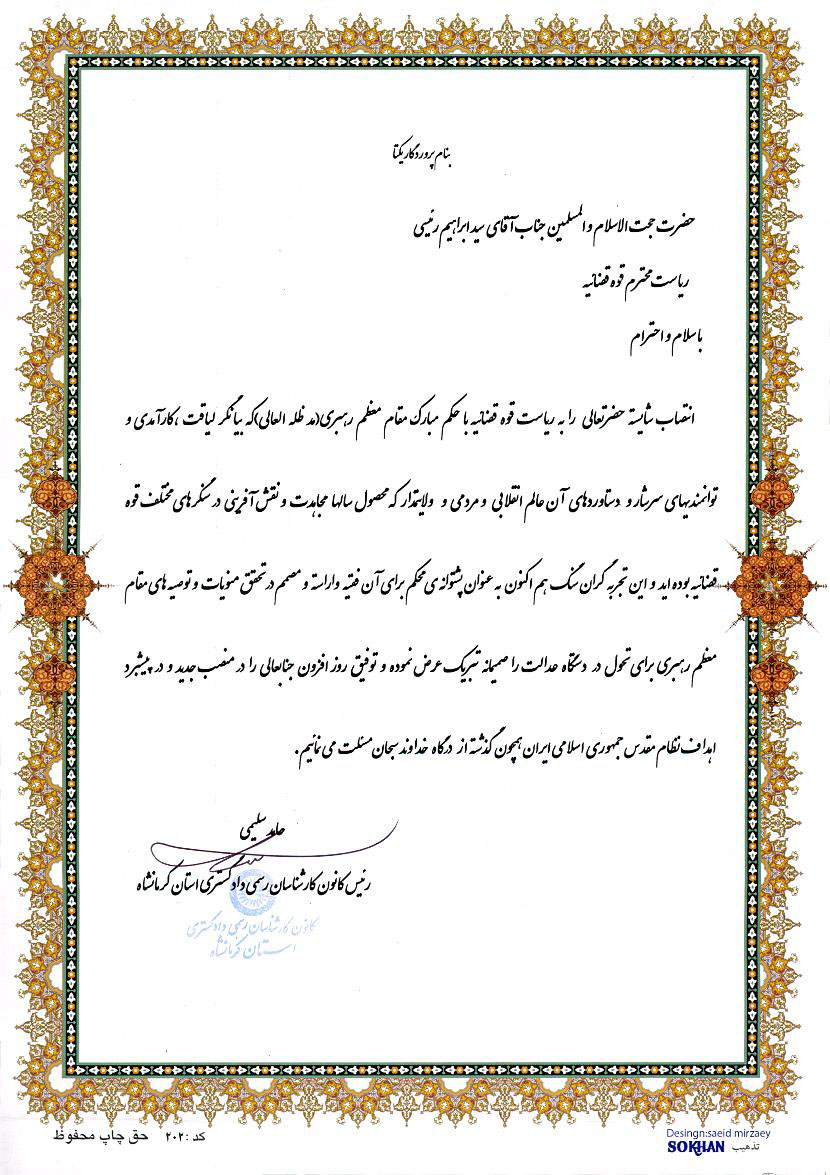 بنام پروردگار یکتا
حضرت حجت الاسلام والمسلمین جناب آقای سید ابراهیم رئیسی
ریاست محترم قوه قضائیه
باسلام و احترام
انتصاب شایسته حضرتعالی را به ریاست قوه قضائیه با حکم مبارک مقام معظم رهبری(مد ظله العالی)که بیانگر لیاقت ،کارآمدی و
توانمندیهای سرشار و دستاوردهای آن عالم انقلابی و مردمی و ولایتمدار که محصول سالها مجاهدت و نقش آفرینی در سنگرهای مختلف قوه
قضائیه بوده اید و این تجربه گران سنگ هم اکنون به عنوان پشتوانه ی محکم برای آن فقیه وارسته و مصمم در تحقق منویات و توصیه های مقام
معظم رهبری برای تحول در دستگاه عدالت را صمیمانه تبریک عرض نموده و توفیق روز افزون جنابعالی را در منصب جدید و در پیشبرد
اهداف نظام مقدس جمهوری اسلامی ایران همچون گذشته از درگاه خداوند سبحان مسئلت می نمائیم.
حامد سلیمی
رئیس کانون کارشناسان رسمی دادگستری استان کرمانشاه
کانون کارشناسان رسمی دادگستری
استان کرمانشاه
کد :۲۰۲ حق چاپ محفوظ
Desingn:saeid mirzaey
SOKHAN تذهیب